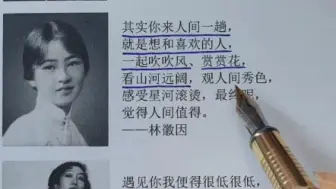 其实你来人间一趟，
就是想和喜欢的人，
一起吹吹风、赏赏花，
看山河远阔，观人间秀色，
感受星河滚烫，最终呢，
觉得人间值得。
——林徽因
遇见你我便得很低很低，